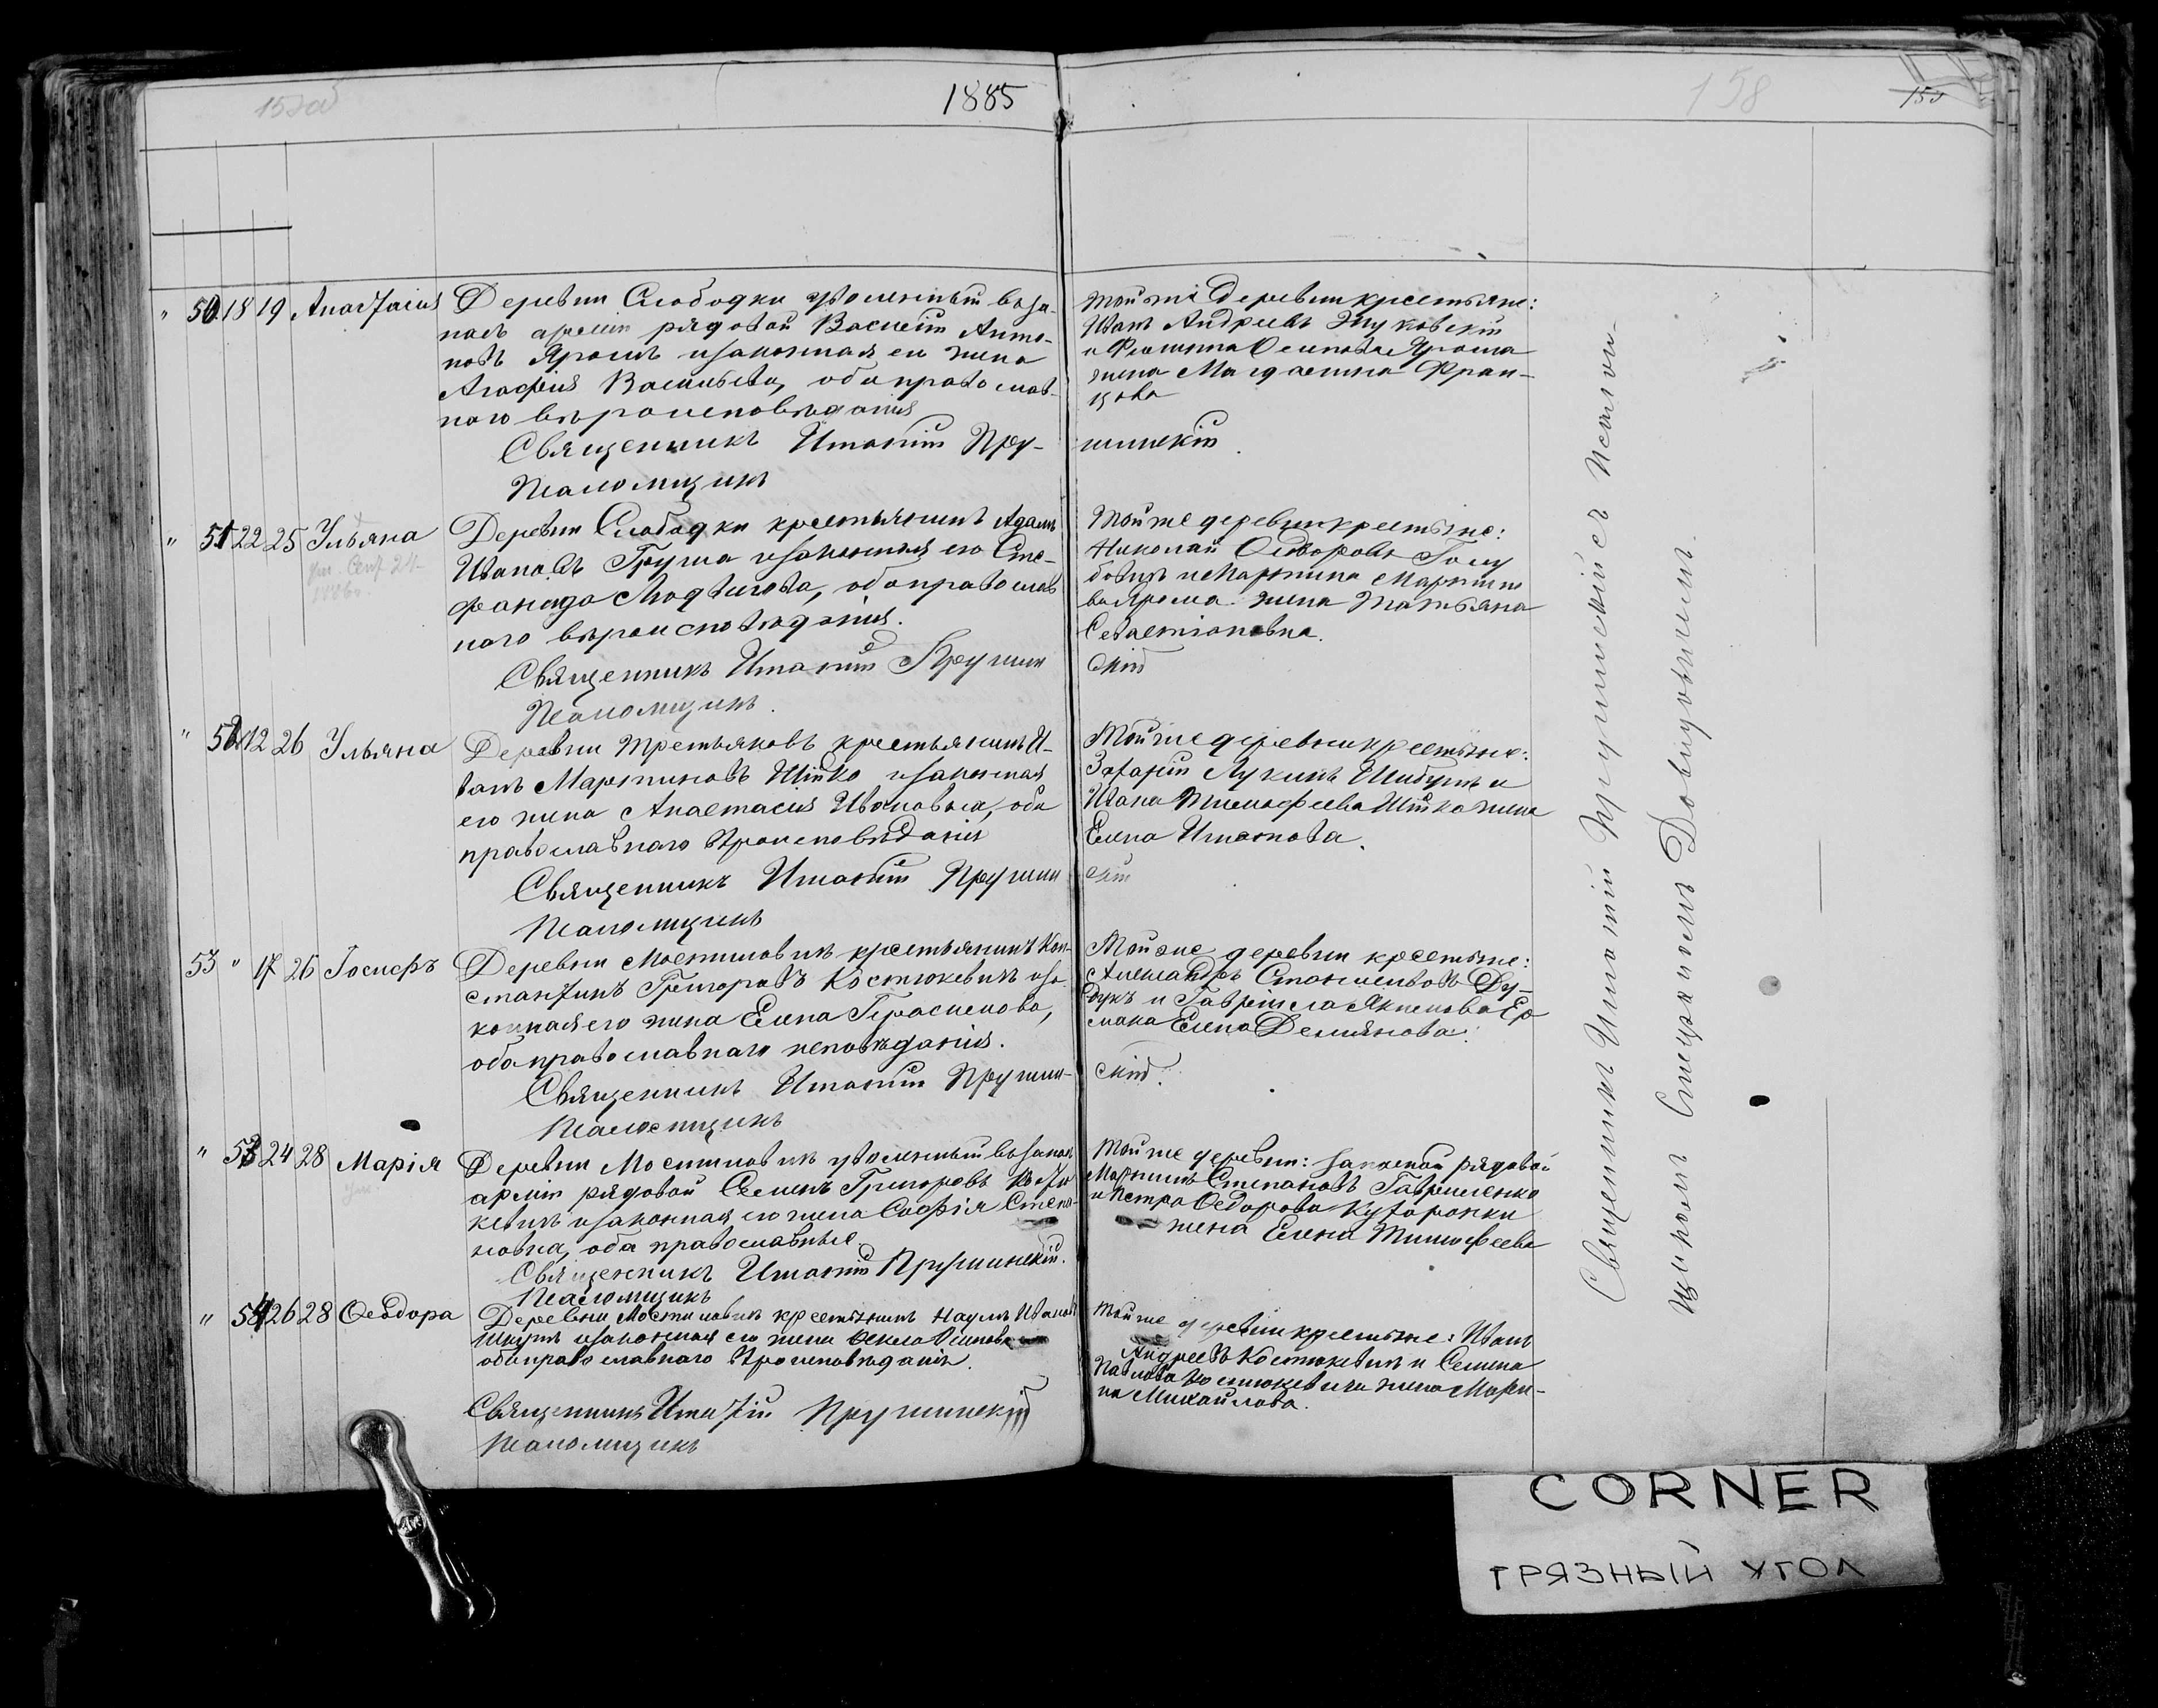 1885
158
" 50 18 19 Анастасія
Деревни Слободки уволенный въ за-
пасъ арміи рядовой Василій Анто-
новъ Ярошъ и законная его жена
Агафія Васильева, оба православ-
наго вѣроисповѣданія
Священникъ Игнатій Пру-
Псаломщикъ
Той же деревни крестьяне:
Иванъ Андреевъ Жуковскій
и Филиппа Осипова Яроша
жена Магдалина Фран-
цова
шинскій
" 51 22 25 Ульяна
Деревни Слободки крестьянинъ Адамъ
Ивановъ Груша и законная его Сте-
фанида Модестова, оба православ
наго вѣроисповѣданія.
Священникъ Игнатій Прушин
Псаломщикъ.
Той же деревни крестьяне:
Николай Ѳедоровъ Голу
бовичъ и Мартина Мартино
ва Яроша жена Татьяна
Севастіановна.
скій
" 52 12 26 Ульяна
Деревни Третьяковъ крестьянинъ И-
ванъ Мартиновъ Шпko и законная
его жена Анастасія Ивановна, оба
православнаго вѣроисповѣданія
Священникъ Игнатій Прушин
Псаломщикъ
Той же деревни крестьяне:
Захарій Лукинъ и
Ивана Тимофеева жена
Елена Игнатова.
скій
53 " 17 26 Іосифъ
Деревни Мостиловичъ крестьянинъ Кон-
стантинъ Григоровъ Костюкевичъ и за-
конная его жена Елена Герасимова,
оба православнаго исповѣданія.
Священникъ Игнатій Прушин-
Псаломщикъ
Той же деревни крестьяне:
Александръ Станиславовъ Ду-
дукъ и Гавріила Якимова Ер
мака Елена Демянова.
скій.
" 53 24 28 Марія
Деревни Мостиловичъ уволенный въ запасъ
арміи рядовой Семенъ Григоровъ Костю
кевичъ и законная его жена Софія Степа-
новна, оба православные
Священникъ Игнатій Прушинскій.
Псаломщикъ
Той же деревни: запасной рядовой
Мартинъ Степановъ Гавриленко
и Петра Ѳедорова Кухаронки
жена Елена Тимофеева
" 54 26 28 Ѳеодора
Деревни Мостиловичъ крестьянинъ Наумъ Ивановъ
и законная его жена Ѳекла Осипова
оба православнаго вѣроисповѣданія.
Священникъ Игнатій Прушинскій
Псаломщикъ
Той же деревни крестьяне: Иванъ
Андреевъ Костюкевичъ и Семена
Павлова Костюкевича жена Мари-
на Михайлова.
Священникъ Игнатій Прушинскій съ Псалом-
щикомъ Довнуровичемъ.
CORNER
ГРЯЗНЫЙ УГОЛ